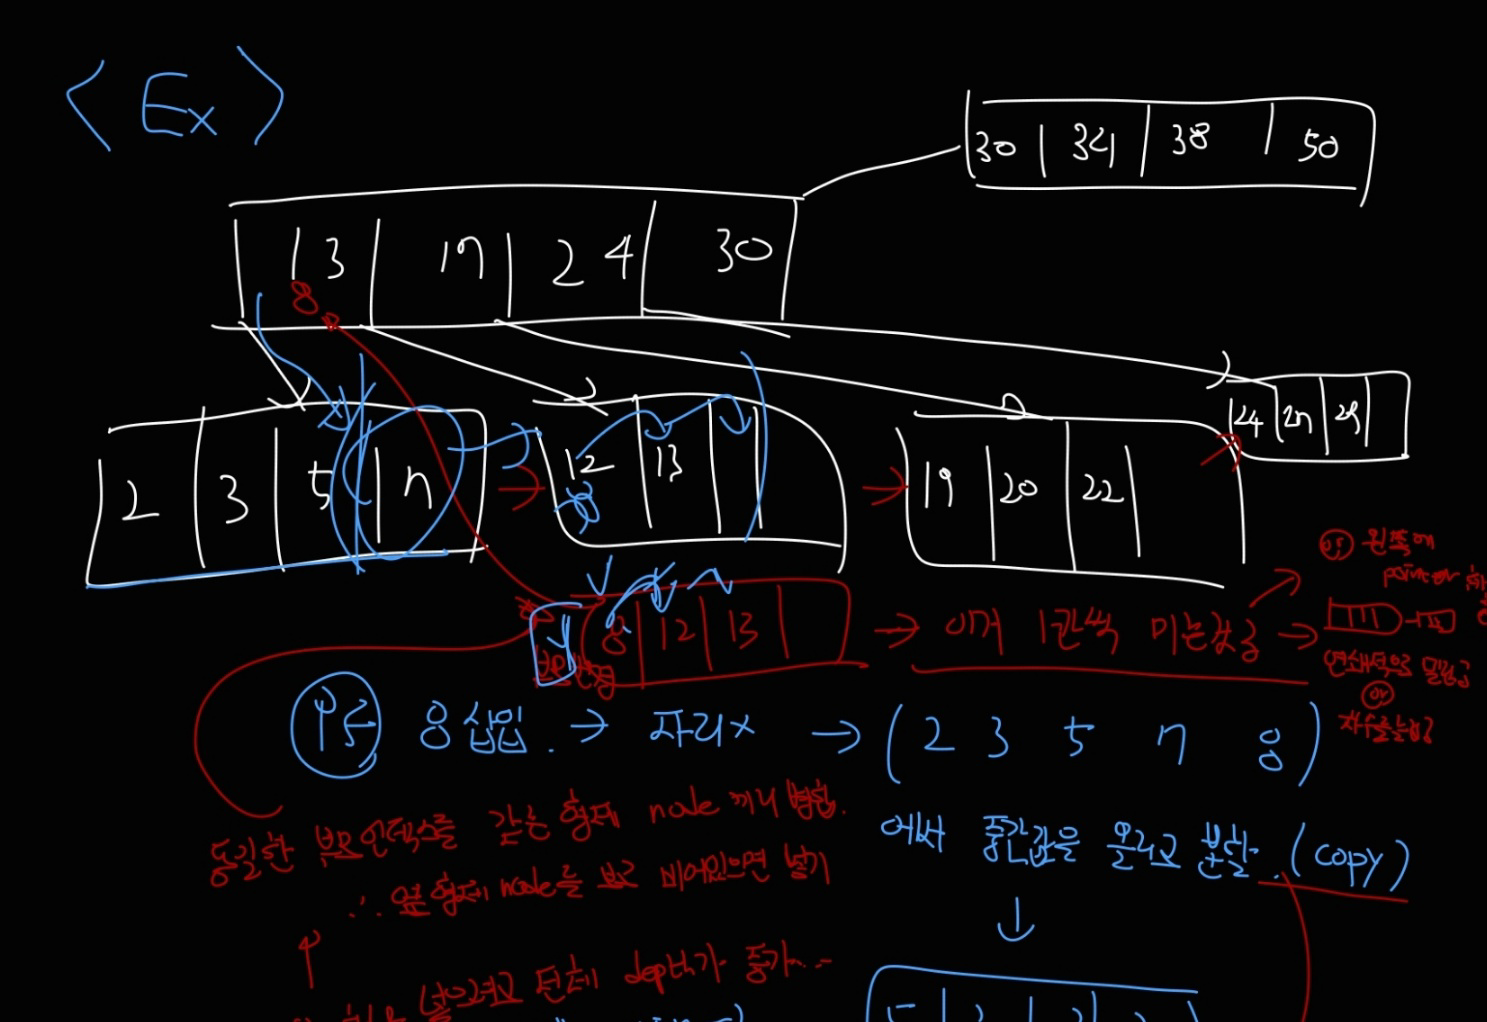 < Ex >
30 34 38 50
13 17 24 30
8
24 27 29
2 3 5 7
12 13
19 20 22
8
or 왼쪽에
pointer
8 12 13 → 이거 1칸씩
연쇄적으로 밀림
or
8 삽입. → 자리 x → ( 2 3 5 7 8 )
동일한 부모인덱스를 같는 형제 node 끼리 병합.
에서 중간값을 올리고 분할. (copy)
∴ 옆 형제 node를 보고 비어있으면 넣기
넣으려고 전체 depth가 증가...